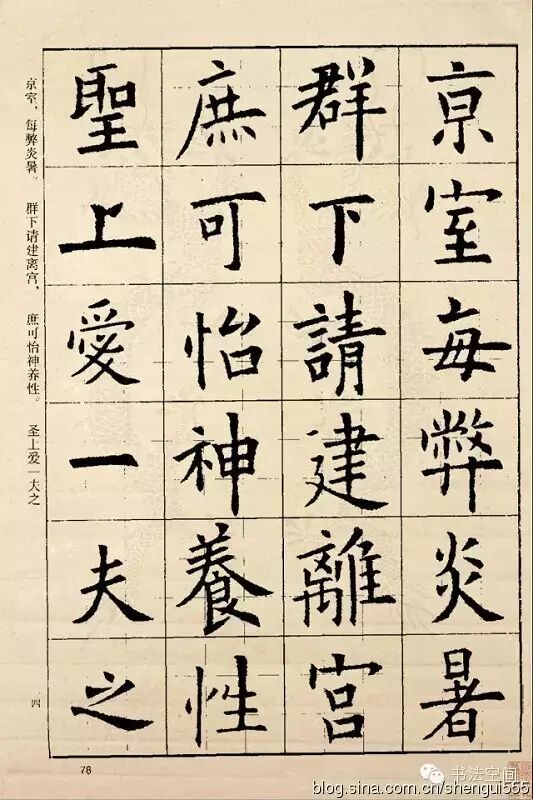 京室每弊炎暑
群下請建離宮
庶可怡神養性
聖上愛一夫之
京室，每弊炎暑。 群下请建离宫， 庶可怡神养性。 圣上爱一夫之
四
78
书法空间
blog.sina.com.cn/shengui565